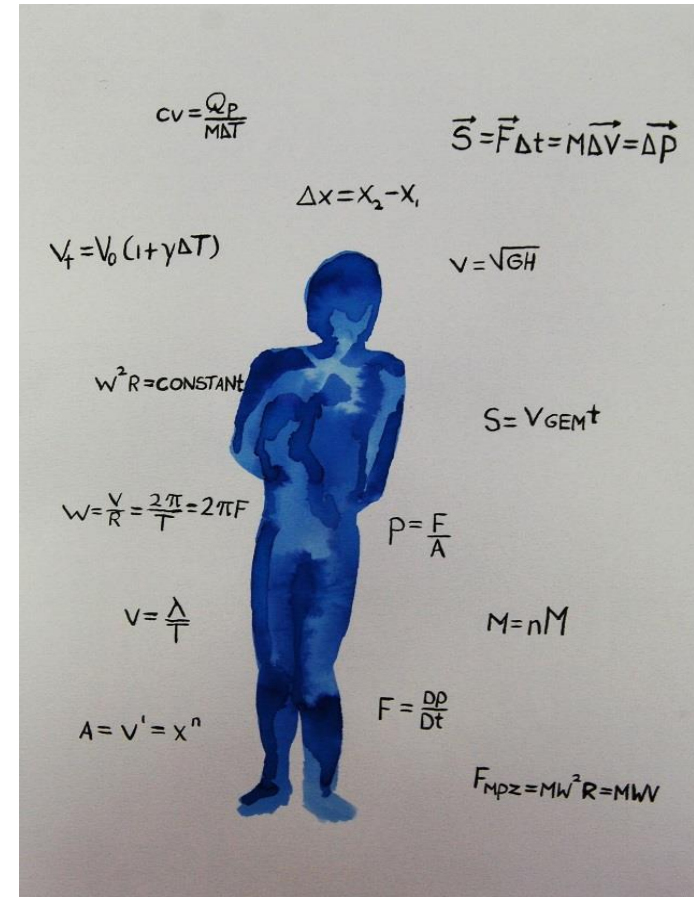 CV = Qp/MΔT
S⃗ = F⃗Δt = MΔV⃗ = Δp⃗
Δx = X₂ - X₁
V₊ = V₀ (1 + γΔT)
V = √GH
W²R = CONSTANt
S = VGEMt
W = V/R = 2π/T = 2πF
P = F/A
V = λ/T
M = nM
A = V' = xⁿ
F = Dp/Dt
FMPZ = MW²R = MWV